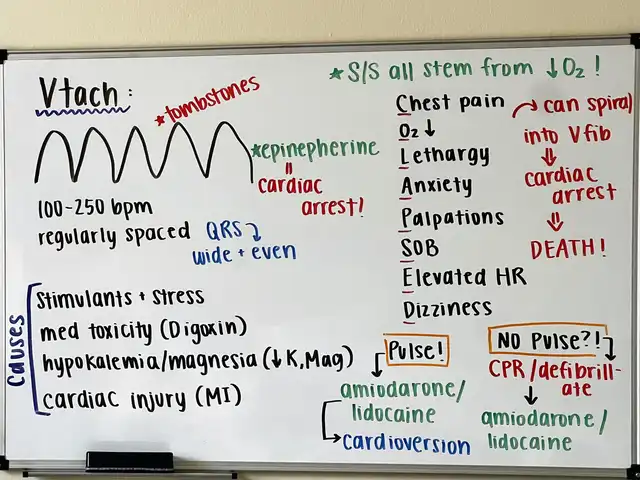 Vtach:
*tombstones
*epinepherine
=
cardiac
arrest!
100-250 bpm
regularly spaced
QRS
wide + even
Causes
Stimulants + Stress
med toxicity (Digoxin)
hypokalemia/magnesia (↓K,Mag)
cardiac injury (MI)
*S/S all stem from ↓O₂!
Chest pain
O₂↓
Lethargy
Anxiety
Palpations
SOB
Elevated HR
Dizziness
can spiral
into Vfib
cardiac
arrest
DEATH!
Pulse!
amiodarone/
lidocaine
→cardioversion
NO Pulse?!
CPR/defibrill-
ate
amiodarone/
lidocaine